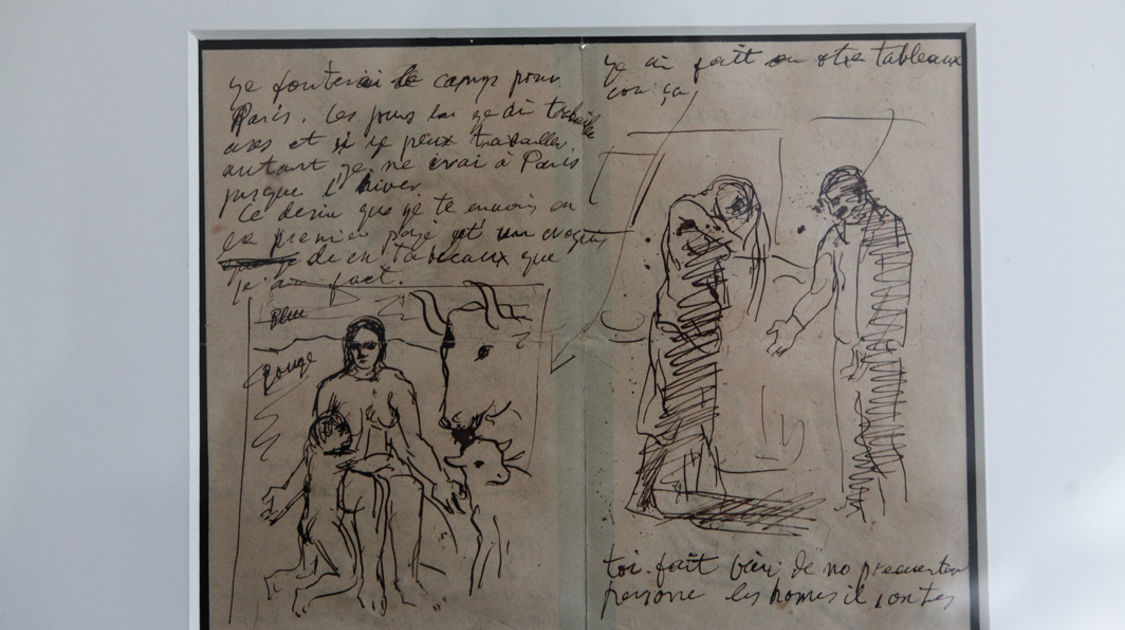 je fouterai le camp pour
Paris. Les jours la je di
ases et si je peux trabailler
autant je ne irai à Paris
jusque l'hiver
Ce desin que je te envois en
la premier page et un croquis
de en tableaux que
je ai fait.
Bleu
Rouge
je ai fait en otre tableaux
con ça
toi fait bien de no frecuenter
persone les homes il son tes